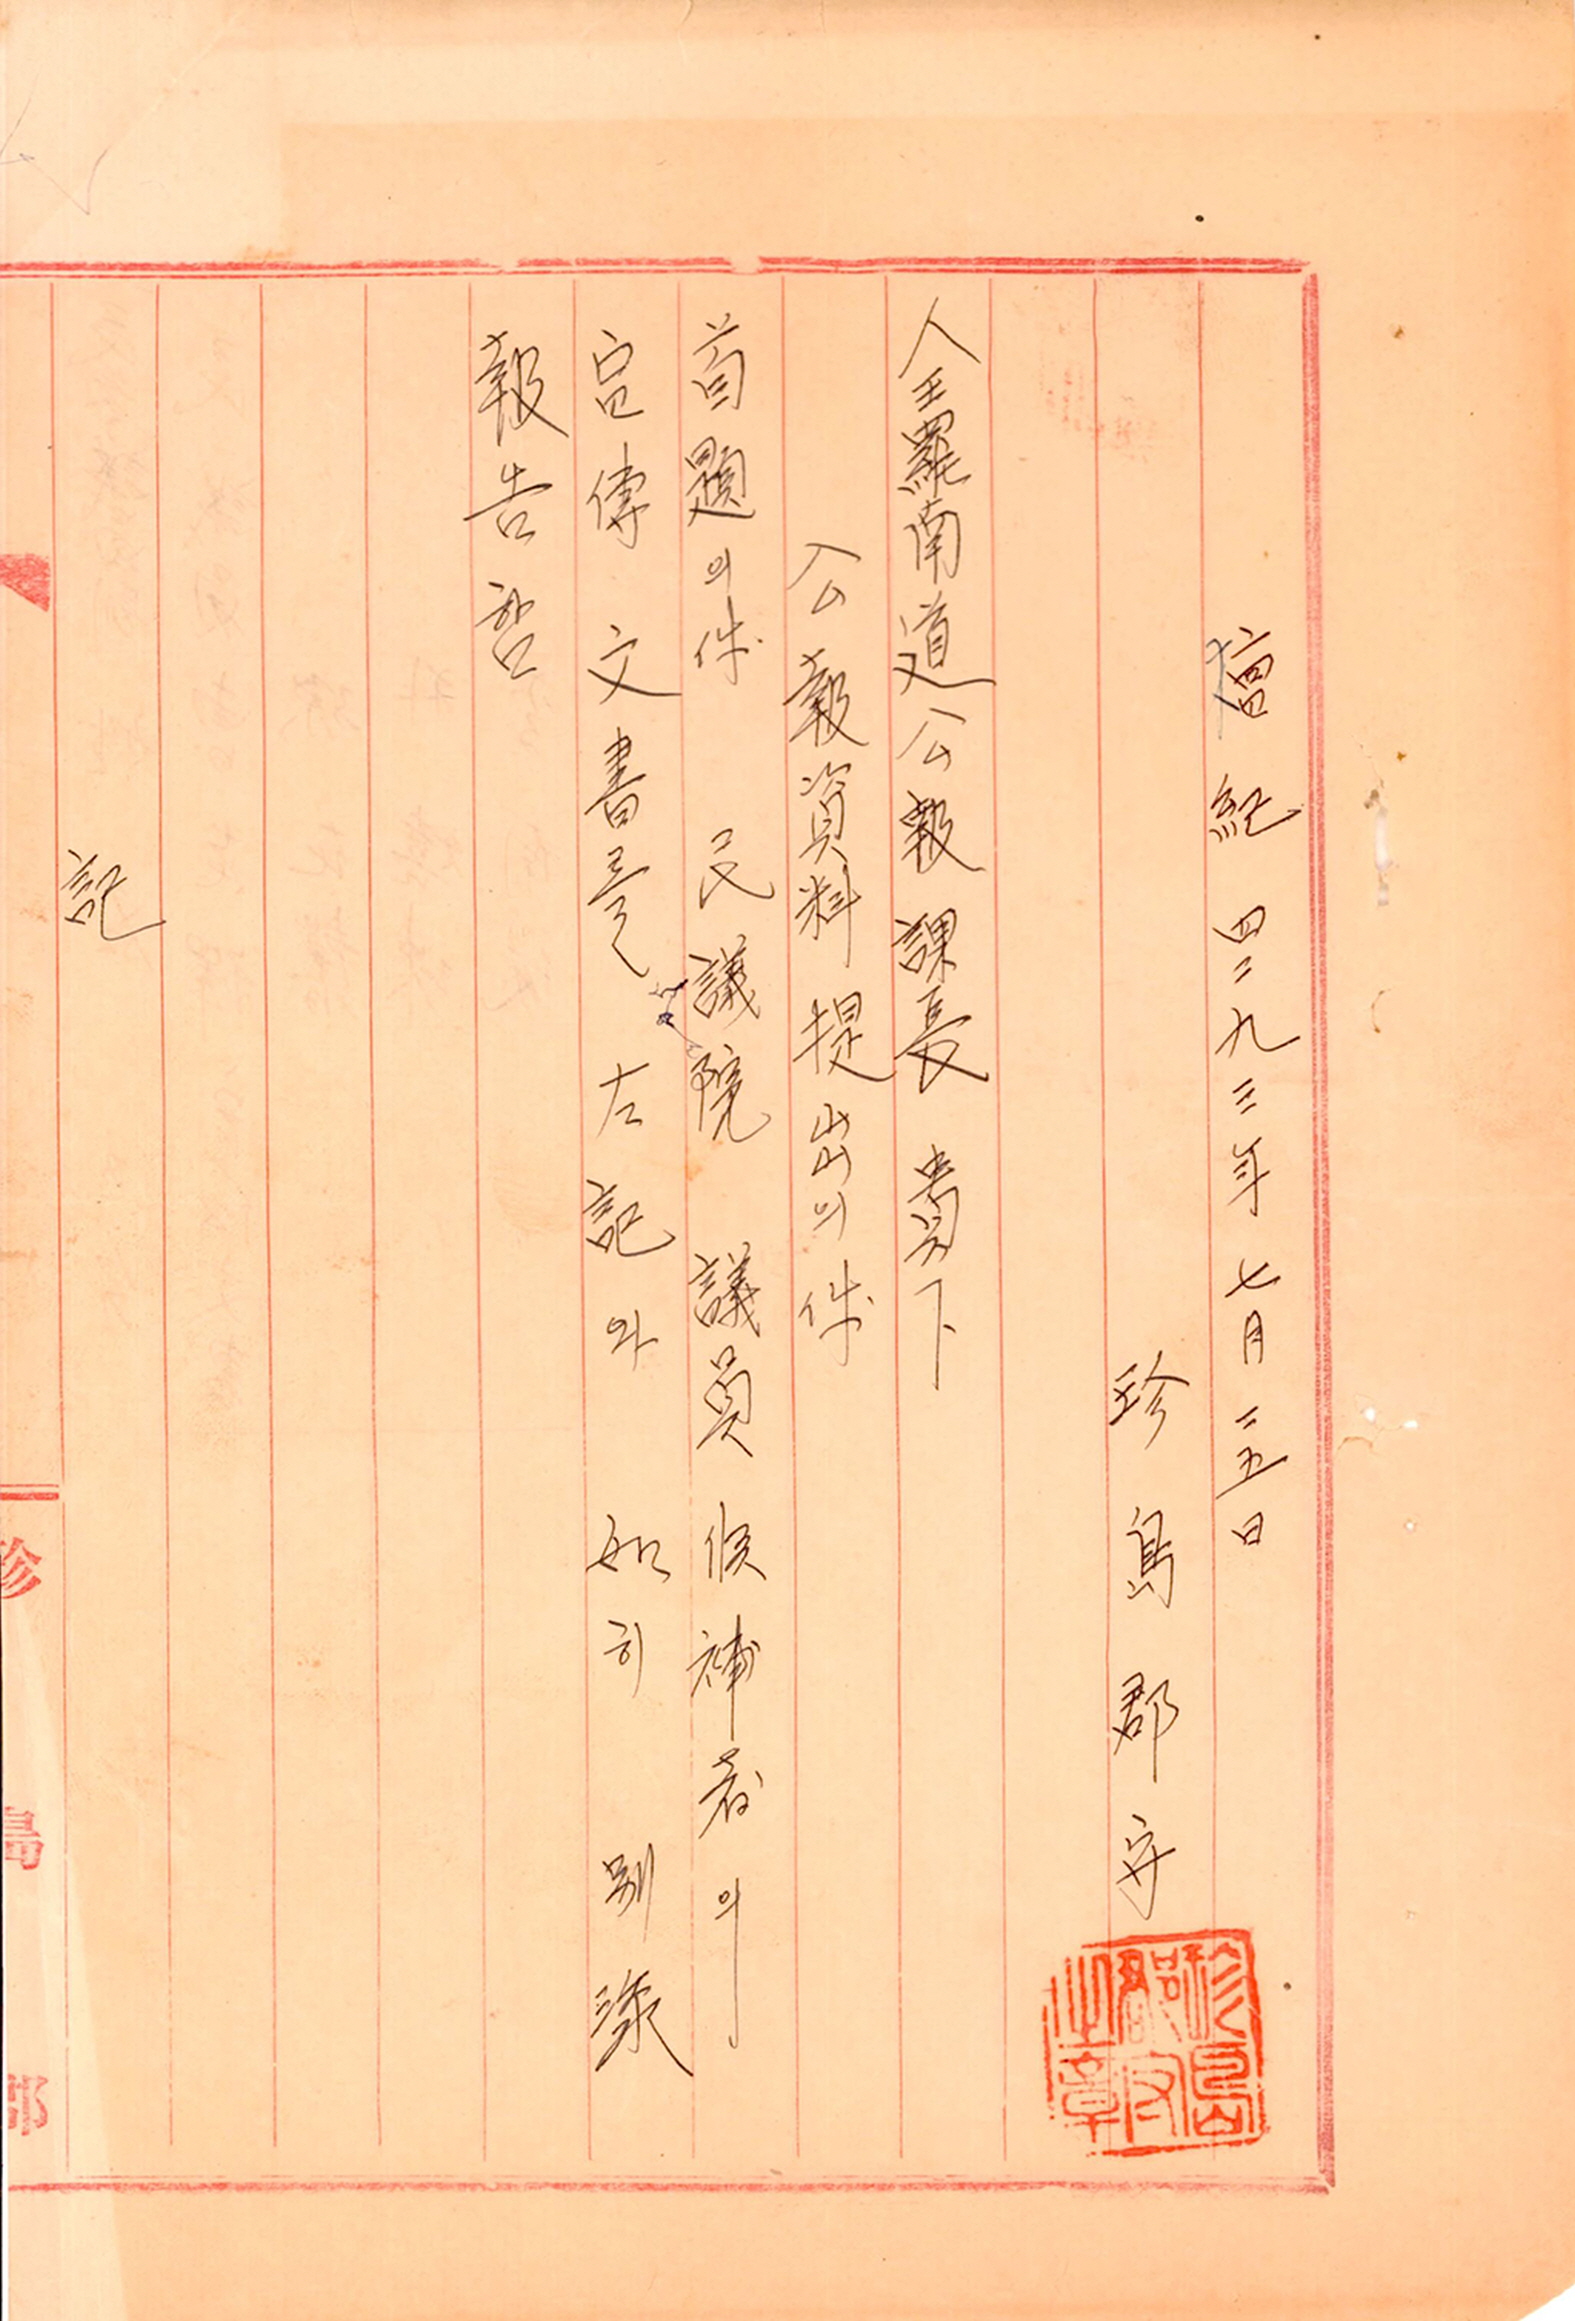 檀紀四二九三年七月二五日
珍島郡守
珍島郡守之章
全羅南道公報課長 貴下
公報資料提出의件
首題의件 民議院 議員 候補者의
宣傳 文書를 左記와 如히 別添
報告함
記
珍島郡